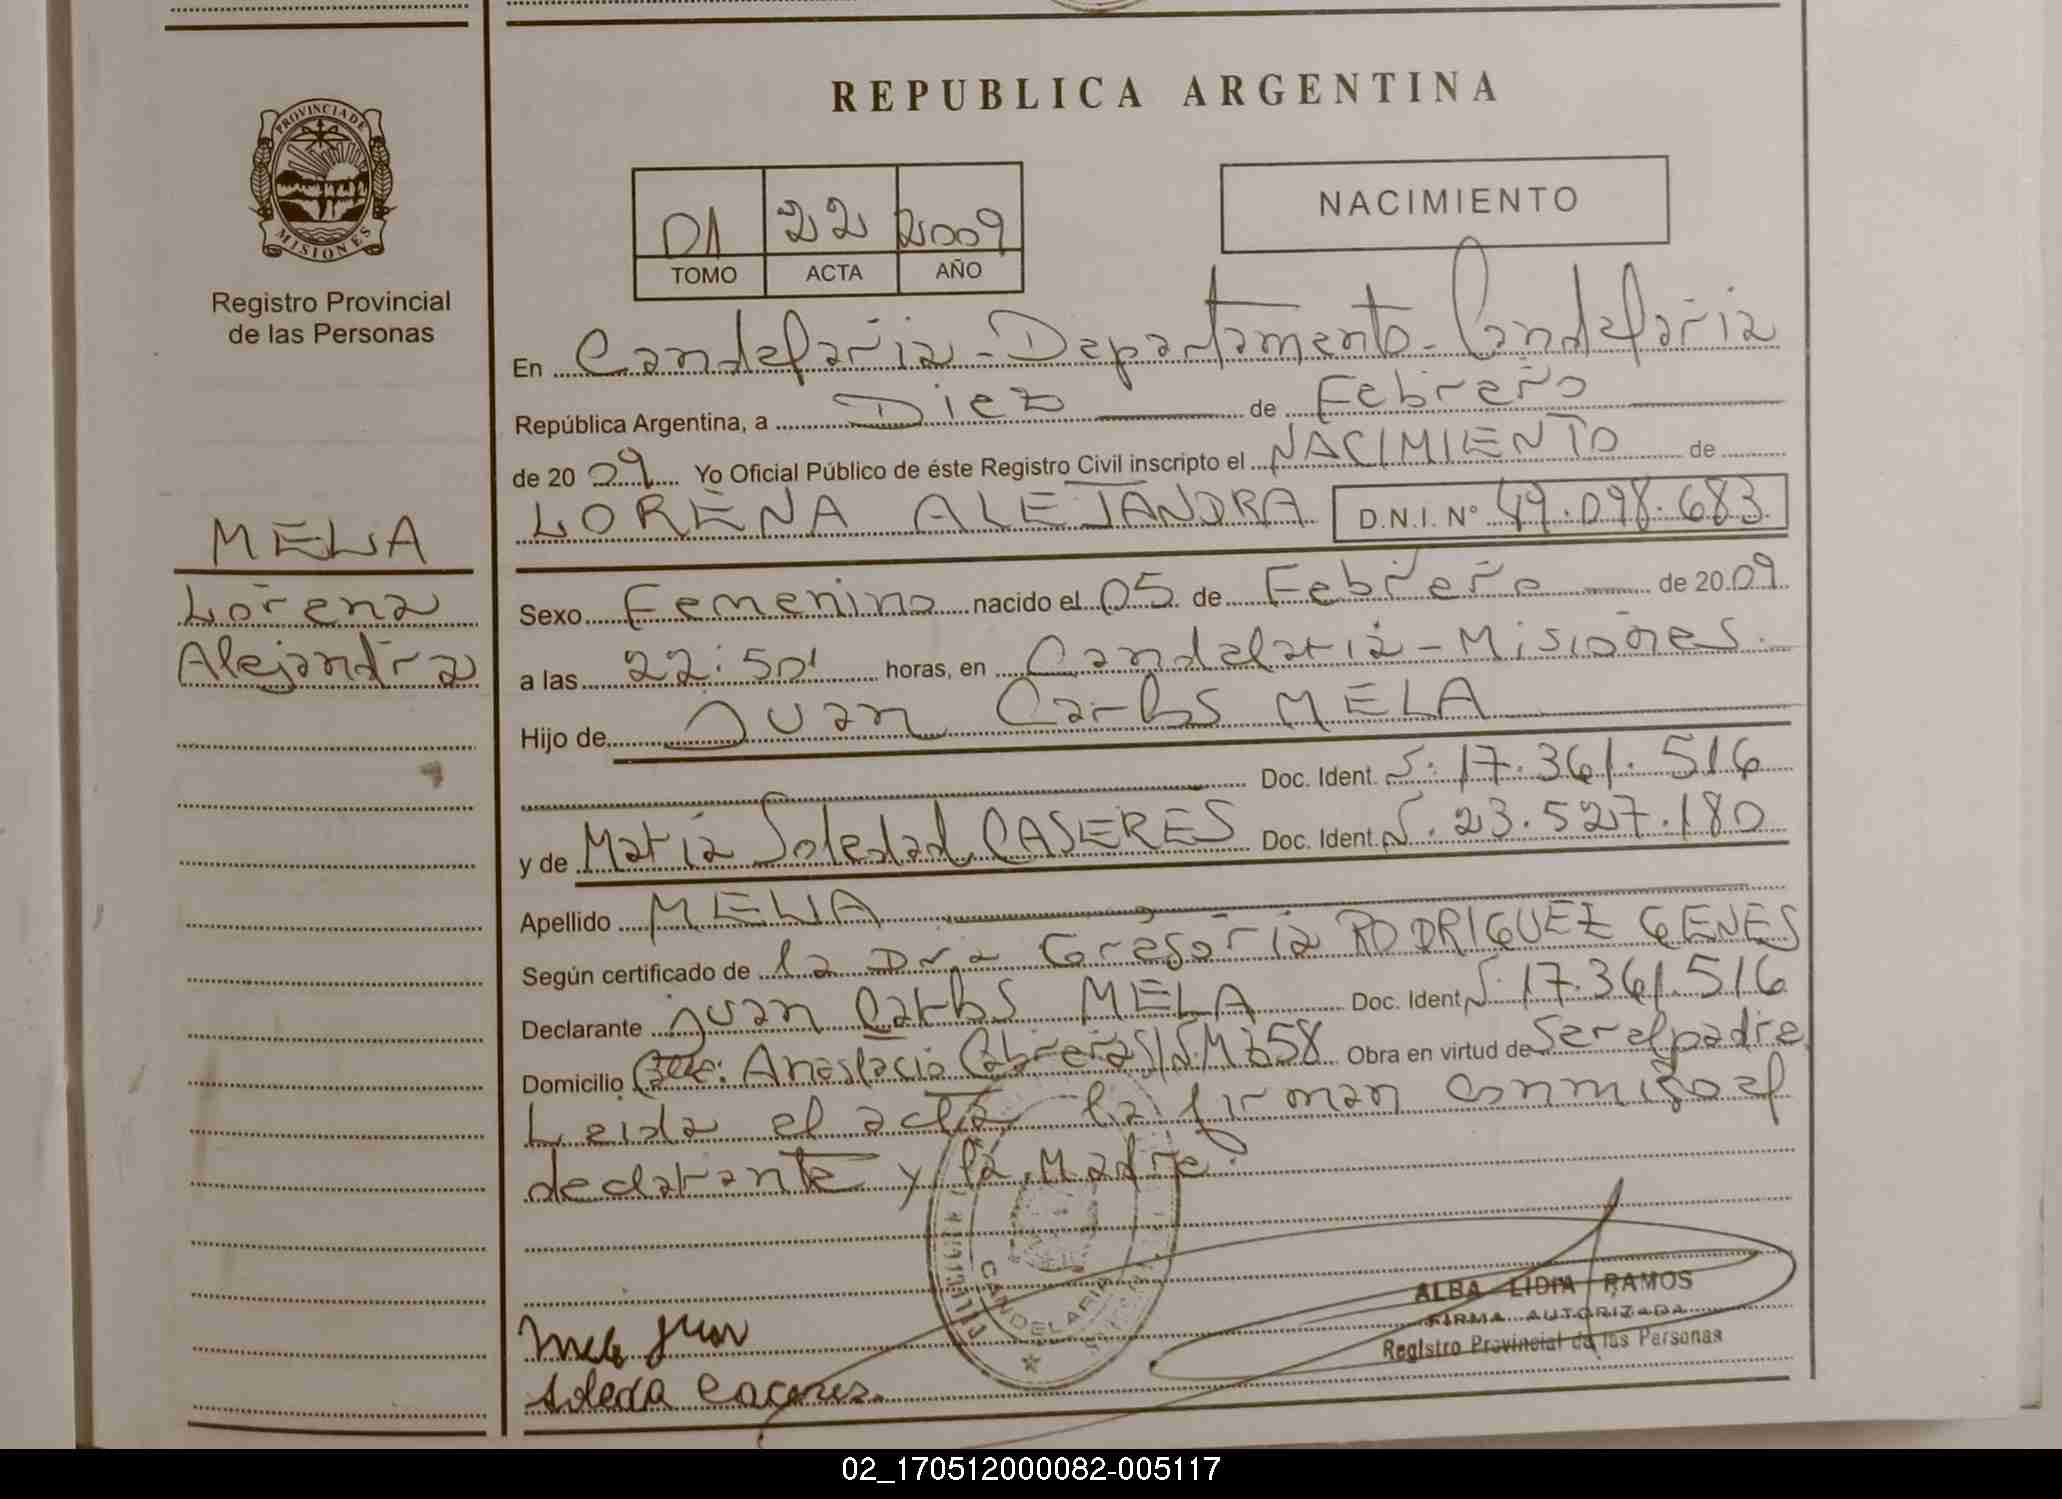 REPUBLICA ARGENTINA
PROVINCIA DE
MISIONES
Registro Provincial
de las Personas
NACIMIENTO
01 22 2009
TOMO ACTA AÑO
En Candelaria - Departamento - Candelaria
República Argentina, a Diez de Febrero
de 20 09 Yo Oficial Público de éste Registro Civil inscripto el NACIMIENTO de
MELA
Lorena
Alejandra
LORENA ALEJANDRA D.N.I. Nº 49.098.683
Sexo Femenino nacido el 05 de Febrero de 20 09
a las 22:50' horas, en Candelaria - Misiones.
Hijo de Juan Carlos MELA
Doc. Ident. 17.361.516
y de Maria Soledad CASERES Doc. Ident. 23.527.180
Apellido MELA
Según certificado de la Dra Gregoria RODRIGUEZ GENES
Declarante Juan Carlos MELA Doc. Ident 17.361.516
Domicilio Anastacio Cabrera S/N Mz 58 Obra en virtud de Ser el padre
Leida el acta la firman conmigo el
declarante y la Madre.
CANDELARIA
ALBA LIDIA RAMOS
FIRMA AUTORIZADA
Registro Provincial de las Personas
Mela Juan
02_170512000082-005117